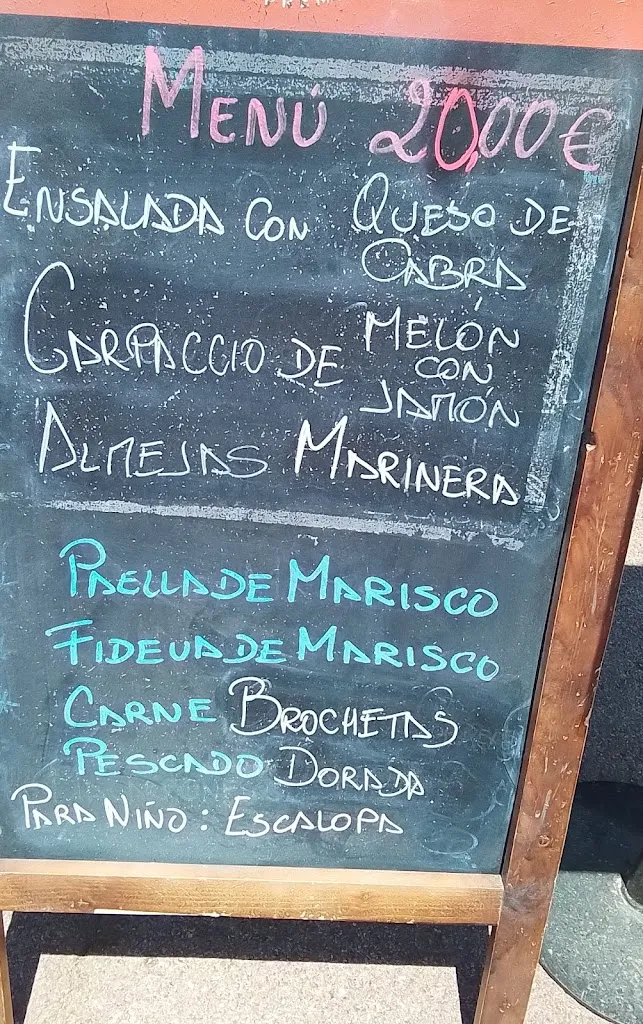 MENÚ 20,00 €
ENSALADA CON QUESO DE
CABRA
CARPACCIO DE MELÓN
CON
JAMÓN
ALMEJAS MARINERA
PAELLA DE MARISCO
FIDEUA DE MARISCO
CARNE BROCHETAS
PESCADO DORADA
PARA NIÑO: ESCALOPA